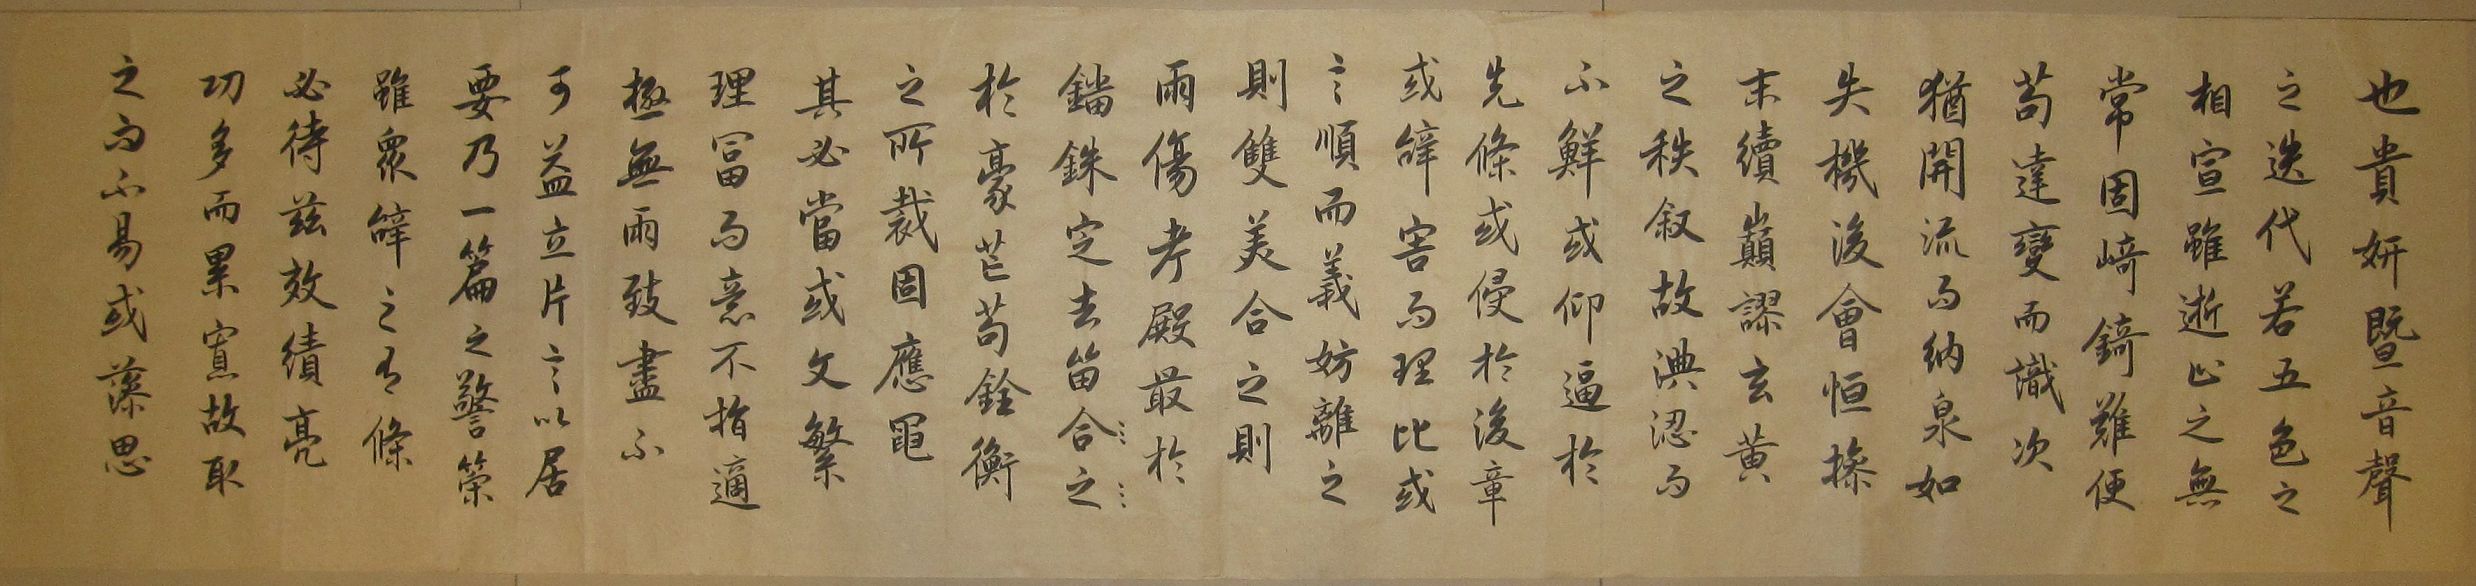 也貴妍暨音聲
之迭代若五色之
相宣雖逝止之無
常固崎錡難便
苟達變而識次
猶開流而納泉如
失機後會恒操
末續巔謬玄黃
之秩叙故淟涊而
不鮮或仰逼於
先條或侵於後章
或辭害而理比或
言順而義妨離之
則雙美合之則
兩傷考殿最於
錙銖定去留合之
於豪芒苟銓衡
之所裁固應繩
其必當或文繁
理富而意不指適
極無兩致盡不
可益立片言以居
要乃一篇之警策
雖衆辭之有條
必待兹效績亮
功多而累寡故取
之而不易或藻思